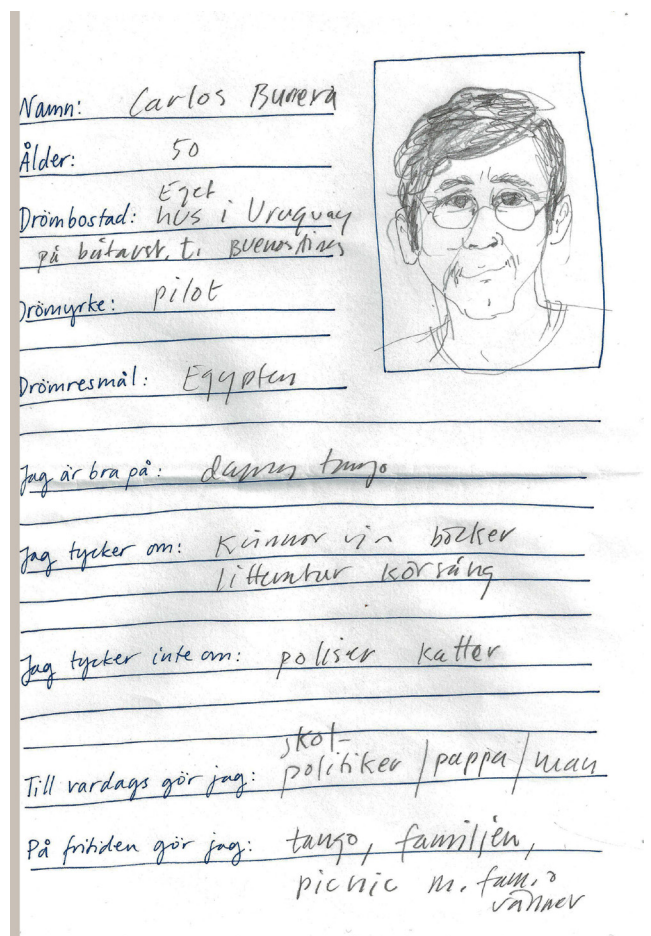 Namn: Carlos Bunera
Ålder: 50
Eget
Drömbostad: hus i Uruguay
på båtavst. t. Buenos Aires
Drömyrke: pilot
Drömresmål: Egypten
Jag är bra på: dansa tango
Jag tycker om: kvinnor vin böcker
litteratur körsång
Jag tycker inte om: poliser katter
skol-
Till vardags gör jag: politiker / pappa / man
På fritiden gör jag: tango, familjen,
picnic m. fam. o
vänner